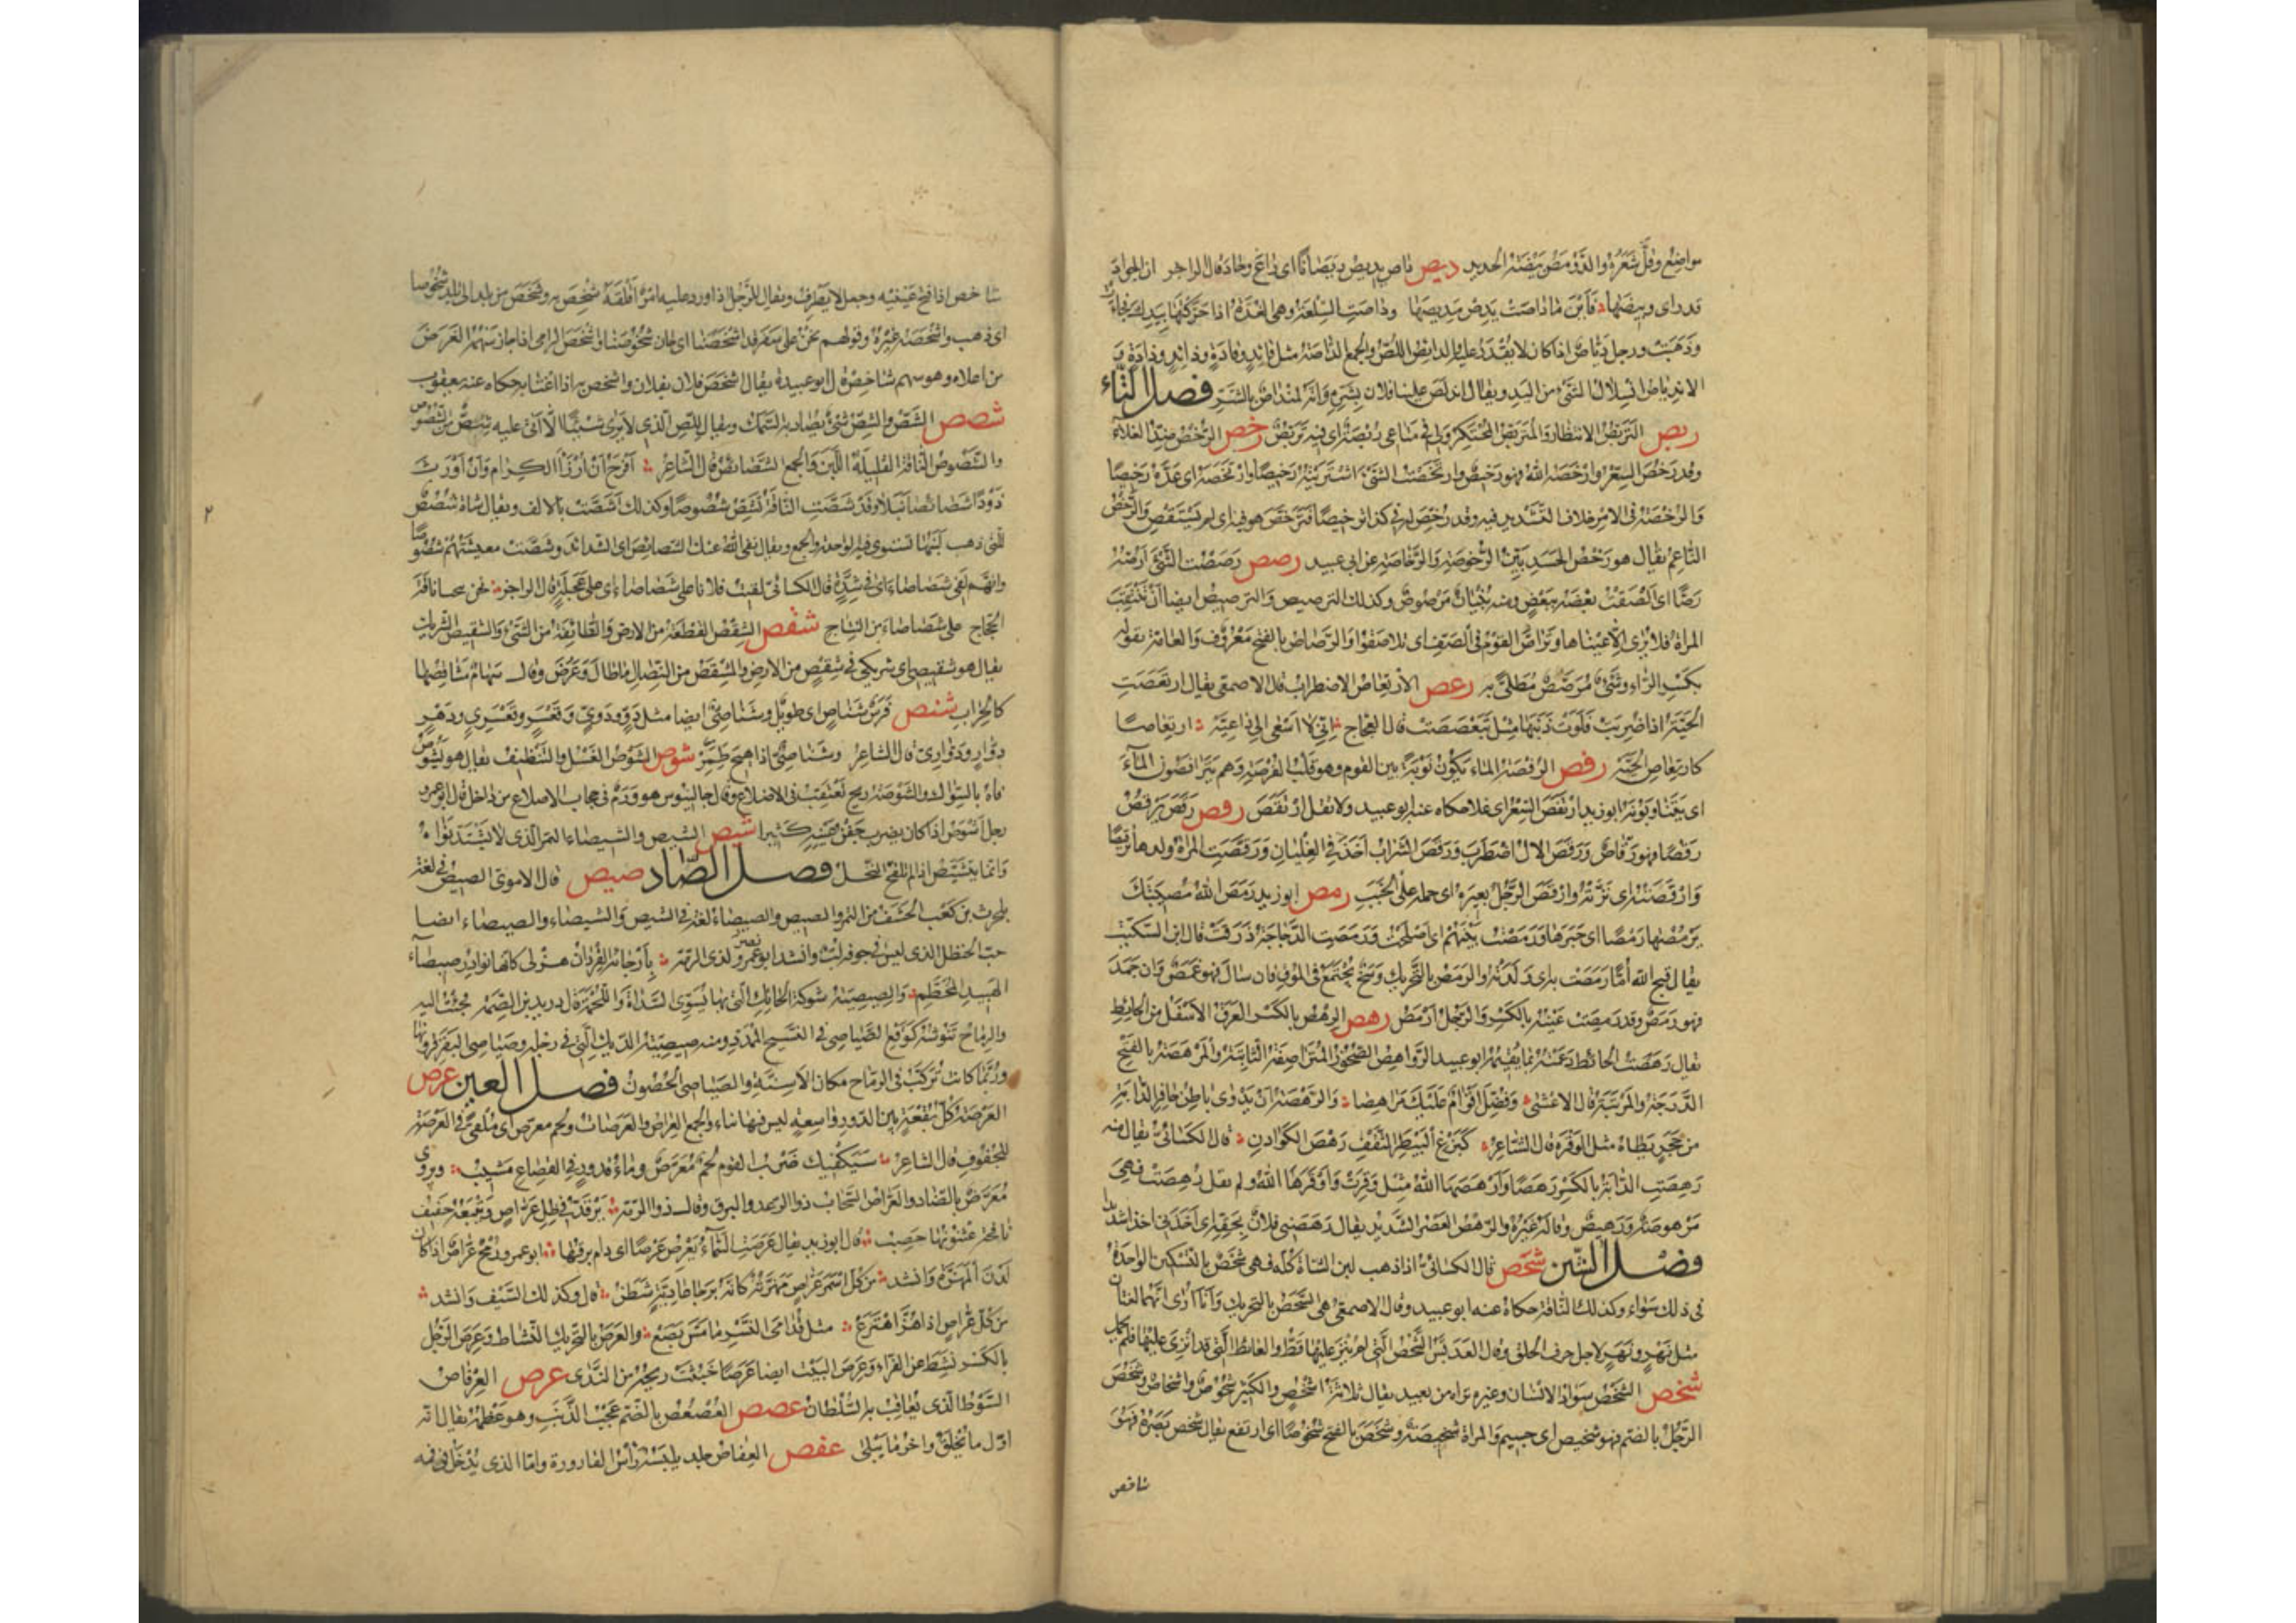 مواضع وقلّ شعره والدّومص بيضة الحديد ديص داص يديص ديصانا اى زاغ وحاد قال الراجز ان الجواد
قد راى وبيصها فاين ما داصت يدص مديصها وداصت السلعة وهى الغدة اذا حركتها بيدك فجاءت
وذهبت ورجل دياص اذا كان لا يقدر عليه الدايص اللص والجمع الداصة مثل قائد وقادة وذائد وذادة
الاندياص انسلال الشئ من اليد ويقال اندلص علينا فلان بشره وانه لمنداص بالشر فصل الراء
ربص التربص الانتظار والمتربص المحتكر ولى فى متاعى ربصة اى فيه تربص رخص الرخص ضد الغلاء
وقد رخص السعر وارخصه الله فهو رخيص وارتخصت الشئ اشتريته رخيصا وارتخصه اى عده رخيصا
والرخصة فى الامر خلاف التشديد فيه وقد رخص له فى كذا ترخيصا فترخص هو فيه اى لم يستقص والرخص
الناعم يقال هو رخص الجسد بين الرخوصة والرخاصة عن ابى عبيد رصص رصصت الشئ ارصه
رصا اى الصقت بعضه ببعض ومنه بنيان مرصوص وكذلك الترصيص والترصيص ايضا ان تنتقب
المراة فلا يرى الا عيناها وتراص القوم فى الصف اى تلاصقوا والرصاص بالفتح معروف والعامة تقوله
بكسر الراء وشئ مرصص مطلى به رعص الارتعاص الاضطراب قال الاصمعى يقال ارتعصت
الحية اذا ضربت فلوت ذنبها مثل تبعصصت قال العجاج انى لا اسعى الى داعية ارتعاصا
كارتعاص الحية رفص الرفصة الماء يكون نوبة بين القوم وهو قلب الفرصة وهم يترافصون الماء
اى يتناوبونه ابو زيد ارتفص السعر اى غلا حكاه عنه ابو عبيد ولا تقل ارتقص رقص رقص يرقص
رقصا فهو رقاص ورقص الال اضطرب ورقص الشراب اخذ فى الغليان ورقصت المراة ولدها ترقيصا
وارقصته اى نزته وارقص الرجل بعيره اى حمله على الخبب رمص ابو زيد رمص الله مصيبتك
يرمصها رمصا اى جبرها ورمصت بينهم اى اصلحت ورمصت الدجاجة ذرقت قال ابن السكيت
يقال قبح الله اما رمصت به اى ولدته والرمص بالتحريك وسخ يجتمع فى الموق فان سال فهو غمص وان جمد
فهو رمص وقد رمصت عينه بالكسر والرجل ارمص رهص الرهص بالكسر العرق الاسفل من الحائط
يقال رهصت الحائط دعمته بما يقيمه ابو عبيد الرواهص الصخور المتراصفة الثابتة والمرهصة بالفتح
الدرجة والمرتبة قال الاعشى وفضل اقوام عليك مراهصا والرهصة ان يدوى باطن حافر الدابة
من حجر يطاه مثل الوقرة قال الشاعر كبزغ البيطر الثقف رهص الكوادن قال الكسائى يقال منه
رهصت الدابة بالكسر رهصا وارهصها الله مثل وقرت واوقرها الله ولم يقل رهصت فهى
مرهوصة ورهيص وقاله غيره والرهص العصر الشديد يقال رهصنى فلان بحقه اى اخذنى اخذا شديدا
فصل الشين شحص قال الكسائى اذا ذهب لبن الشاة كله فهى شحص بالتسكين الواحدة
فى ذلك سواء وكذلك الناقة حكاه عنه ابو عبيد وقال الاصمعى هى الشحص بالتحريك وانا ارى انهما لغتان
مثل نهر ونهر لاجل حرف الحلق وقال العدبس الشحص التى لم ينز عليها قط والعائط التى قد انزى عليها فلم تحمل
شخص الشخص سواد الانسان وغيره تراه من بعيد يقال ثلاثة اشخص والكثير شخوص واشخاص وشخص
الرجل بالضم فهو شخيص اى جسيم والمراة شخيصة وشخص بالفتح شخوصا اى ارتفع يقال شخص بصره فهو
شاخص
شاخص اذا فتح عينيه وجعل لا يطرف ويقال للرجل اذا ورد عليه امر اقلقه شخص به وشخص من بلد الى بلد شخوصا
اى ذهب واشخصه غيره وقولهم نحن على سفر قد اشخصنا اى حان شخوصنا واشخص الرامى اذا جاز سهمه الغرض
من اعلاه وهو سهم شاخص قال ابو عبيدة يقال اشخص فلان بفلان واشخس به اذا اغتابه حكاه عنه يعقوب
شصص الشص والشص شئ يصاد به السمك ويقال للص الذى لا يرى شيئا الا اتى عليه شص من الشصوص
والشصوص الناقة القليلة اللبن والجمع الشصائص قال الشاعر افرح ان ارزا الكرام وان اورث
ذودا شصائصا نبلا وقد شصت الناقة تشص شصوصا وكذلك اشصت بالالف ويقال شاة شصص
للتى ذهب لبنها تستوى فيه الواحدة والجمع ويقال نفى الله عنك الشصائص اى الشدائد وشصت معيشتهم شصوصا
وانهم لفى شصاصاء اى فى شدة قال الكسائى لقيت فلانا على شصاصاء اى على عجلة قال الراجز نحن نتجنا ناقة
الحجاج على شصاصاء من النتاج شقص الشقص القطعة من الارض والطائفة من الشئ والشقيص الشريك
يقال هو شقيصى اى شريكى فى شقص من الارض والمشقص من النصال ما طال وعرض وقال سهام مشاقصها
كالحراب شنص فرس شناص اى طويل وشناصى ايضا مثل دو ودوى وقعسر وقعسرى ودهر
دوار ودوارى قال الشاعر وشناصى اذا هيج طمر شوص الشوص الغسل والتنظيف يقال هو يشوص
فاه بالسواك والشوصة ريح تعتقب فى الاضلاع وقال جالينوس هو ورم فى حجاب الاضلاع من داخل قال ابو عمرو
رجل اشوص اذا كان يضرب جفن عينه كثيرا شيص الشيص والشيصاء التمر الذى لا يشتد نواه
وانما يتشيص اذا لم تلقح النخل فصل الصاد صيص قال الاموى الصيص فى لغة
بلحرث بن كعب الحشف من التمر والصيص والصيصاء لغة فى الشيص والشيصاء والصيصاء ايضا
حب الحنظل الذى ليس فى جوفه لب وانشد ابو نصر لذى الرمة بارجائه القردان هزلى كانها نوادر صيصاء
الهبيد المحطم والصيصية شوكة الحائك التى بها يسوى السداة واللحمة قال دريد بن الصمة فجئت اليه
والرماح تنوشه كوقع الصياصى فى النسيج الممدد ومنه صيصية الديك التى فى رجله وصياصى البقر قرونها
وربما كانت تركب فى الرماح مكان الاسنة والصياصى الحصون فصل العين عرص
العرصة كل بقعة بين الدور واسعة ليس فيها بناء والجمع العراص والعرصات ولحم معرص اى ملقى فى العرصة
للجفوف قال الشاعر سيكفيك ضرب القوم لحم معرص وماء قدور فى القصاع مشيب ويروى
معرض بالضاد والعراص السحاب ذو الرعد والبرق وقال ذو الرمة يرقد فى ظل عراص ويتبعه حفيف
نافجة عثنونها حصب قال ابو زيد يقال عرصت السماء تعرص عرصا اى دام برقها ابو عمرو رمح عراص اذا كان
لدن المهزة وانشد من كل اسمر عراص مهزته كانه برجا عادية شطن قال وكذلك السيف وانشد
من كل عراص اذا هز اهتزع مثل قدامى النسر ما مس بضع والعرص بالتحريك النشاط وعرص الرجل
بالكسر نشط عن الفراء وعرص البيت ايضا عرصا خبثت ريحه من الندى عرص العرفاص
السوط الذى يعاقب به السلطان عصص العصعص بالضم عجب الذنب وهو عظمه يقال انه
اول ما يخلق واخر ما يبلى عفص العفاص جلد يلبسه راس القارورة واما الذى يدخل فى فمه